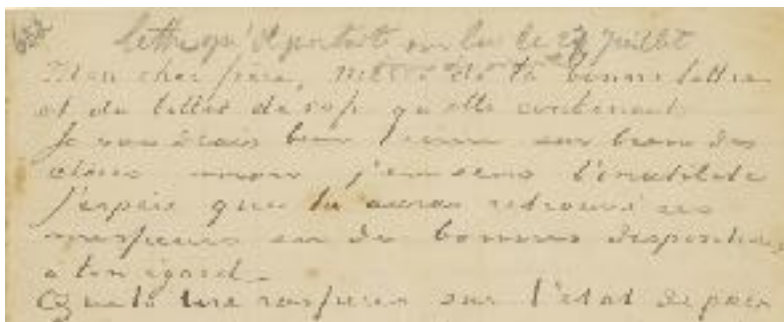 652
lettre qu'il portait sur lui le 27 Juillet
Mon cher frère, merci de ta bonne lettre
et du billet de 50 f. qu'elle contenait.
Je voudrais bien t'écrire sur bien des
choses mais j'en sens l'inutilité
J'espère que tu auras retrouvé ces
messieurs en de bonnes dispositions
à ton égard.
Que tu me rassures sur l'état de paix